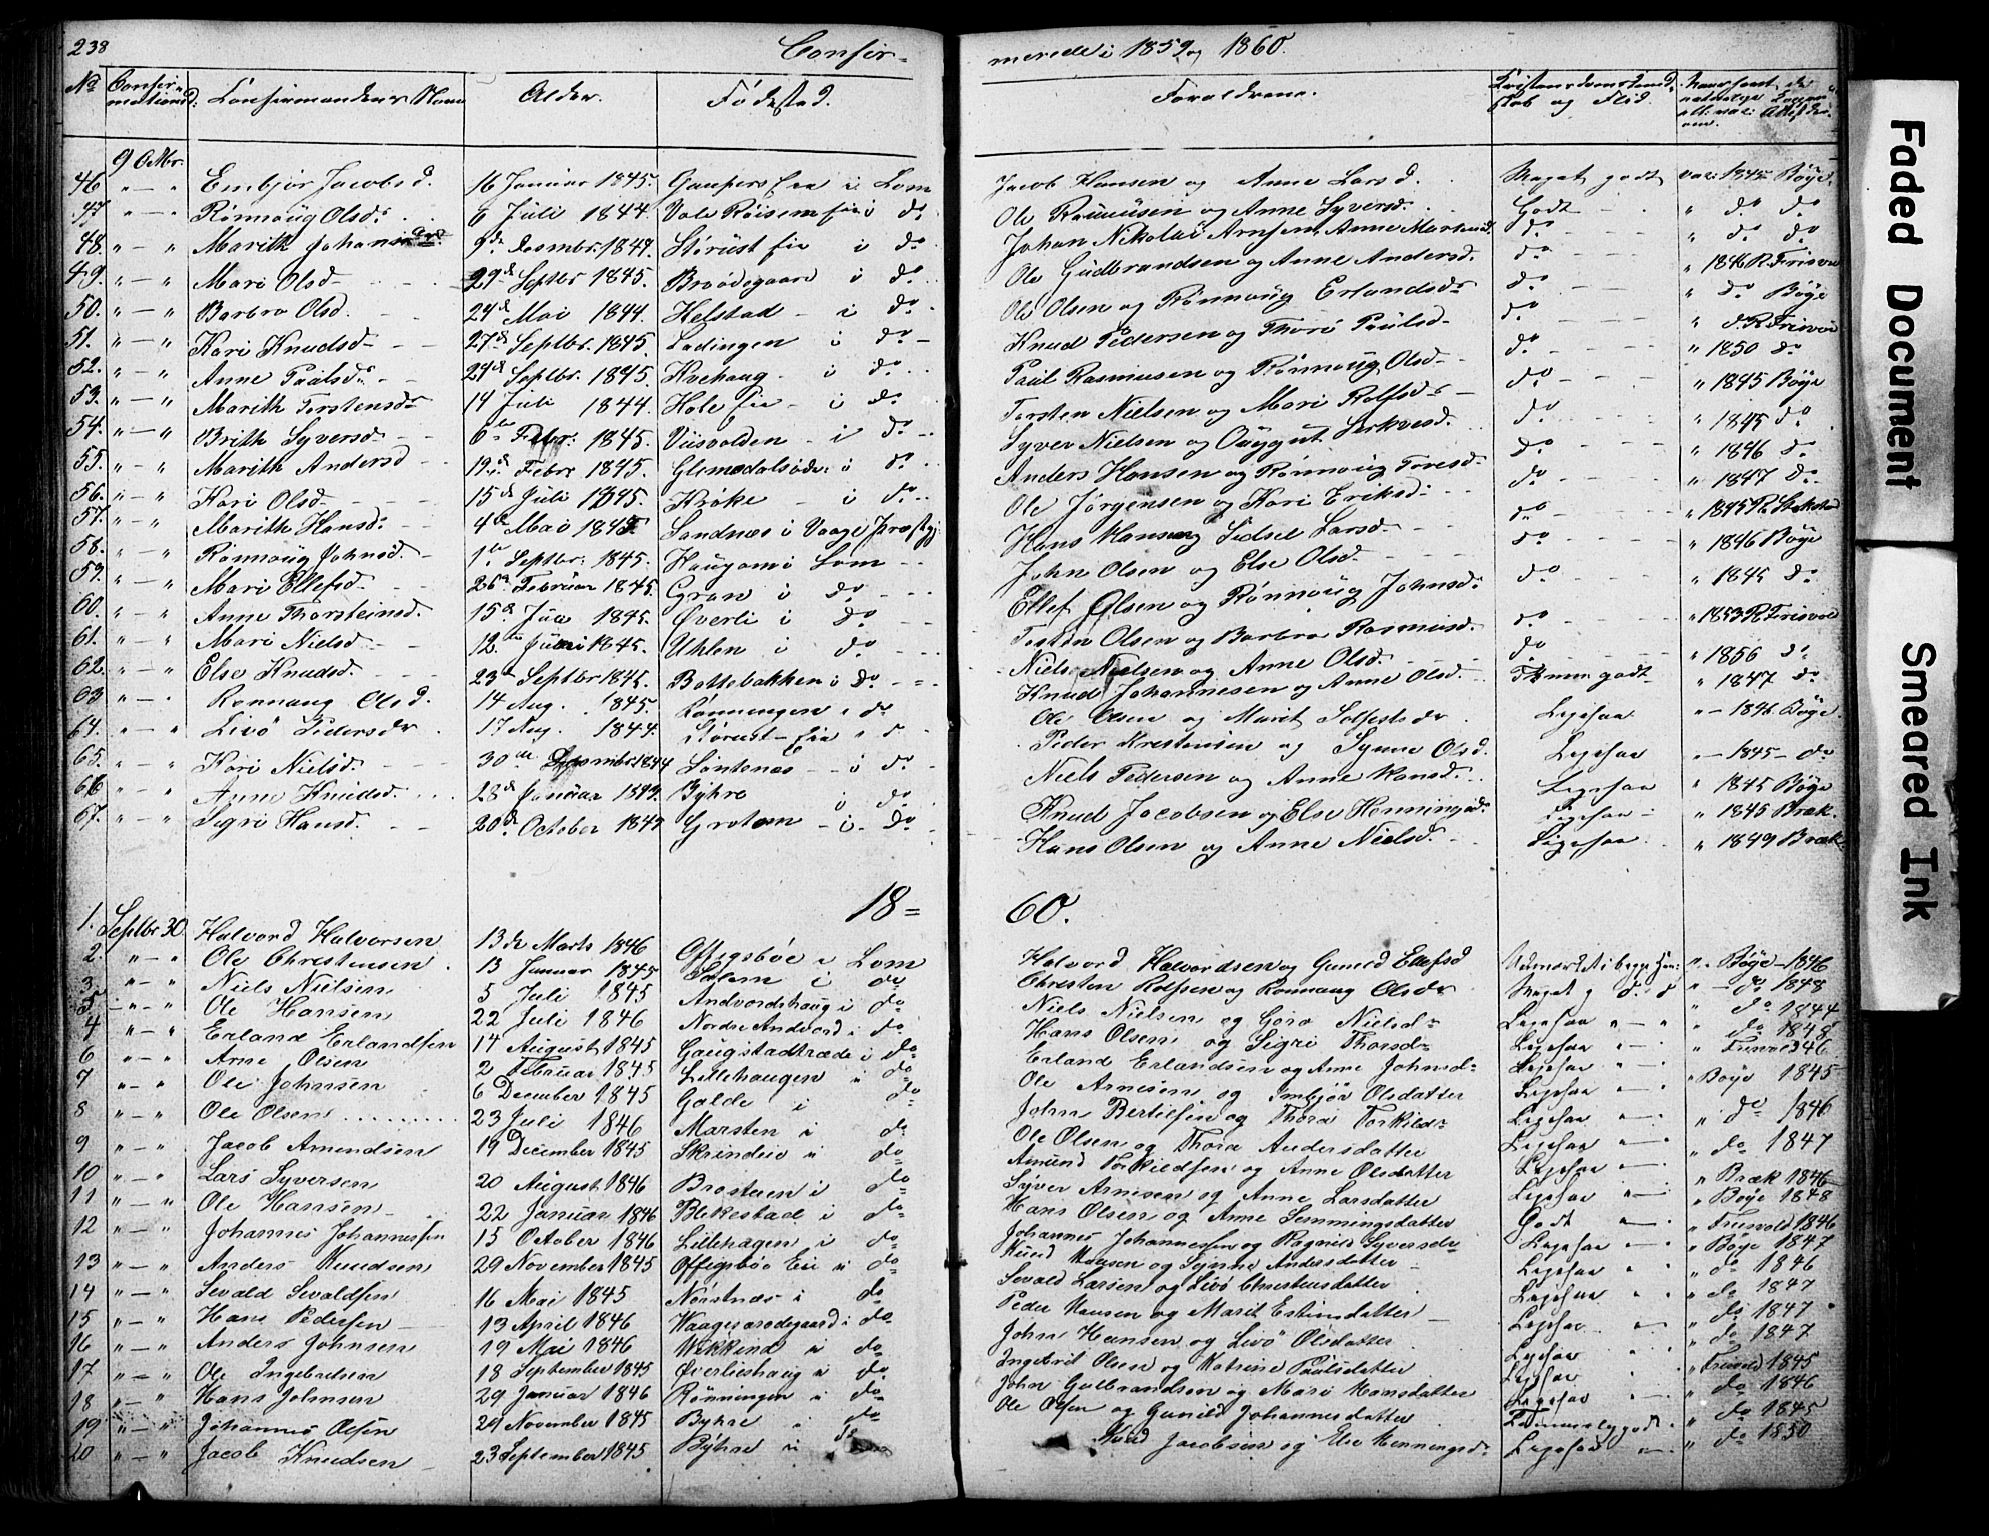 238 Confir= merede i 1859 og 1860.
No Confirmationsd. Confirmandens Navn Alder. Fødested. Forældrene. Kristendomskundskab og Flid. Naar
9 Octbr.
46 " — " Embjør Jacobsd. 16 Januar 1845. i Lom Jacob Hansen og Anne Larsd. Meget godt vac: 1845 Bøye.
47 " — " Rønnaug Olsd. 6 Juli 1844. i do Ole Rasmusen og Anne Syversd. Godt " do do
48. " — " Marith Johans 9de Desmbr. 1844. Størust Eie i do Johan Nikolai Arnsen, Anne do " do do
49. " — " Mari Olsd 29d Septbr 1845. Brødegaard i do Ole Gudbrandsen og Anne Andersd. do " 1846 R. Frisvold
50. " — " Barbro Olsd. 24d Mai 1844. Helstad i do Ole Olsen og Rønnaug Erlandsd. do " do Bøye
51. " — " Kari Knudsd 27d Septbr. 1845. Ladingen i do Knud Pedersen og Thore Paulsd do " d. R. Frisvold
52. " — " Anne Paulsd. 24d Septbr. 1845. Kvehaug i do Paul Rasmusen og Rønnaug Olsd. do " 1850 do
53. " — " Marith Torstensd. 14 Juli 1844. Hole Eie i do Torsten Nielsen og Mari Rolfsd. do " 1845 Bøye
54. " — " Brith Syversd. 6te Febr. 1845. i do Syver Nielsen og do " 1845 do
55. " — " Marith Andersd 19d Febr 1845. Glemsdalsøde i do Anders Hansen og Rønnaug Toresd. do " 1846 do
56. " — " Kari Olsd 15d Juli 1845. Kroke i do Ole Jørgensen og Kari Eriksd. do " 1847 do
57. " — " Marith Hansd. 4de Mai 1845 Sandnæs i Vaage Præstgj. Hans Hansen og Sidsel Larsd. do " 1845
58. " — " Rønnaug Johnsd. 1te Septbr: 1845. i Lom John Olsen og Else Olsd. do " 1846 Bøye
59. " — " Mari Ellefsd. 26d Februar 1845. Gran i do Ellef Olsen og Rønnaug Johnsd. do " 1845 do
60. " — " Anne Thorsteinsd. 15d 1845. Øverli i do Olsen og Barbro Rasmusd. do " 1853 R. Frisvold
61. " — " Mari Nielsd. 12te 1845. Uhlen i do Niels Nielsen og Anne Olsd. do " 1856 do
62. " — " Else Knudsd. 23d Septbr 1845. Bottebakken i do Knud Johannesen og Anne Olsd. godt " 1847 do
63 " — " Ronnaug Olsd. 14 Aug. 1845. Rønningen i do Ole Olsen og Marit Ligesaa Bøye
64. " — " Livø Pedersdr 17 Aug. 1844. Størust Eie " d Peder Krestensen og Synne Olsd. Ligesaa " 1845 do
65. " — " Kari Nielsd. 30 Desembr 1844 i do Niels Pedersen og Anne Hansd. Ligesaa " 1845 Bøye
66 " — " Anne Knudsd. 28d Januar Byhre i do Knud Jacobsen og Else Henningsd. Ligesaa " 1845 Bræk.
67. " — " Sigri Hansd. 20d October Grotom i do Hans Olsen og Anne Nielsd. Ligesaa " 1849 Bræk.
18= 60.
1. Septbr 30 Halvord Halvorsen 13de Marts 1846 Offigsbøe i Lom Halvord Halvordsen og Gunild Ellefsd " Bøye 1846
2. " — " Ole Christensen 13 Januar 1845 Solem i do Christen Rolfsen og Ronnaug Olsdr Meget g " do 1848
3 " — " Niels Nielsen 5 Juli 1845 Andvordshaug i do Niels Nielsen og Gøra Nielsd. Ligesaa " do 1844
5 " — " Ole Hansen 22 Juli 1846 Nordre Andvord i do Hans Olsen og Sigri Thorsd. Ligesaa " do 1848
4 " — " Erland Erlandsen 14 August 1845 Gaugstadtræde i do Erland Erlandsen og Anne Johnsd. Ligesaa " Frisvold 46
6 " — " Arne Olsen 2 Februar 1845 Lillehaugen i do Ole Arnesen og Imbjør Olsdatter Ligesaa " Bøye 1845
7 " — " Ole Johnsen 6 December 1845 Galde i do John Bertelsen og Thora Torkildr Ligesaa " do 1846
8 " — " Ole Olsen 23 Juli 1846 Marsten i do Ole Olsen og Thora Andersdatter Ligesaa " do 1847
9 " — " Jacob Amundsen 19 December 1845 i do Amund Torkildsen og Anne Olsdatter Ligesaa " Bræk 1846
10 " — " Lars Syversen 20 August 1846 Brostuen i do Syver Arnesen og Anne Larsdatter Ligesaa " Bøye 1848
11 " — " Ole Hansen 22 Januar 1846 Blekestad i do Hans Olsen og Anne Semmingsdatter Godt " Frisvold 1846
12 " — " Johannes Johannessen 15 October 1846 Lillehagen i do Johannes Johannessen og Ragnild Syversdr Ligesaa " Bøye 1847
13 " — " Anders Knudsen 29 November 1845 Offigsbøe Eie i do Knud Hansen og Synne Andersdatter Ligesaa " do 1846
14 " — " Sevald Sevaldsen 16 Mai 1845 Nørstnæs i do Sevald Larsen og Livø Christensdatter Ligesaa " do 1847
15 " — " Hans Pedersen 13 April 1846 i do Peder Hansen og Marit Estensdatter Ligesaa " do 1847
16 " — " Anders Johnsen 19 Mai 1846 i do John Hansen og Livø Olsdatter Ligesaa " do 1847
17 " — " Ole Ingebretsen 18 September 1845 Øverlieshaug i do Ingebrit Olsen og Katrine Paulsdatter Ligesaa " Frisvold 1845
18 " — " Hans Johnsen 29 Januar 1846 Rønningen i do John Gulbrandsen og Mari Hansdatter Ligesaa " do 1846
19 " — " Johannes Olsen 24 November 1845 Byhre i do Ole Olsen og Gunild Johannesdatter Temmelig godt " do 1845
20 " — " Jacob Knudsen 23 September 1845 Byhre i do Knud Jacobsen og Else Henningsd. Ligesaa " do 1850
Faded Document
Smeared Ink